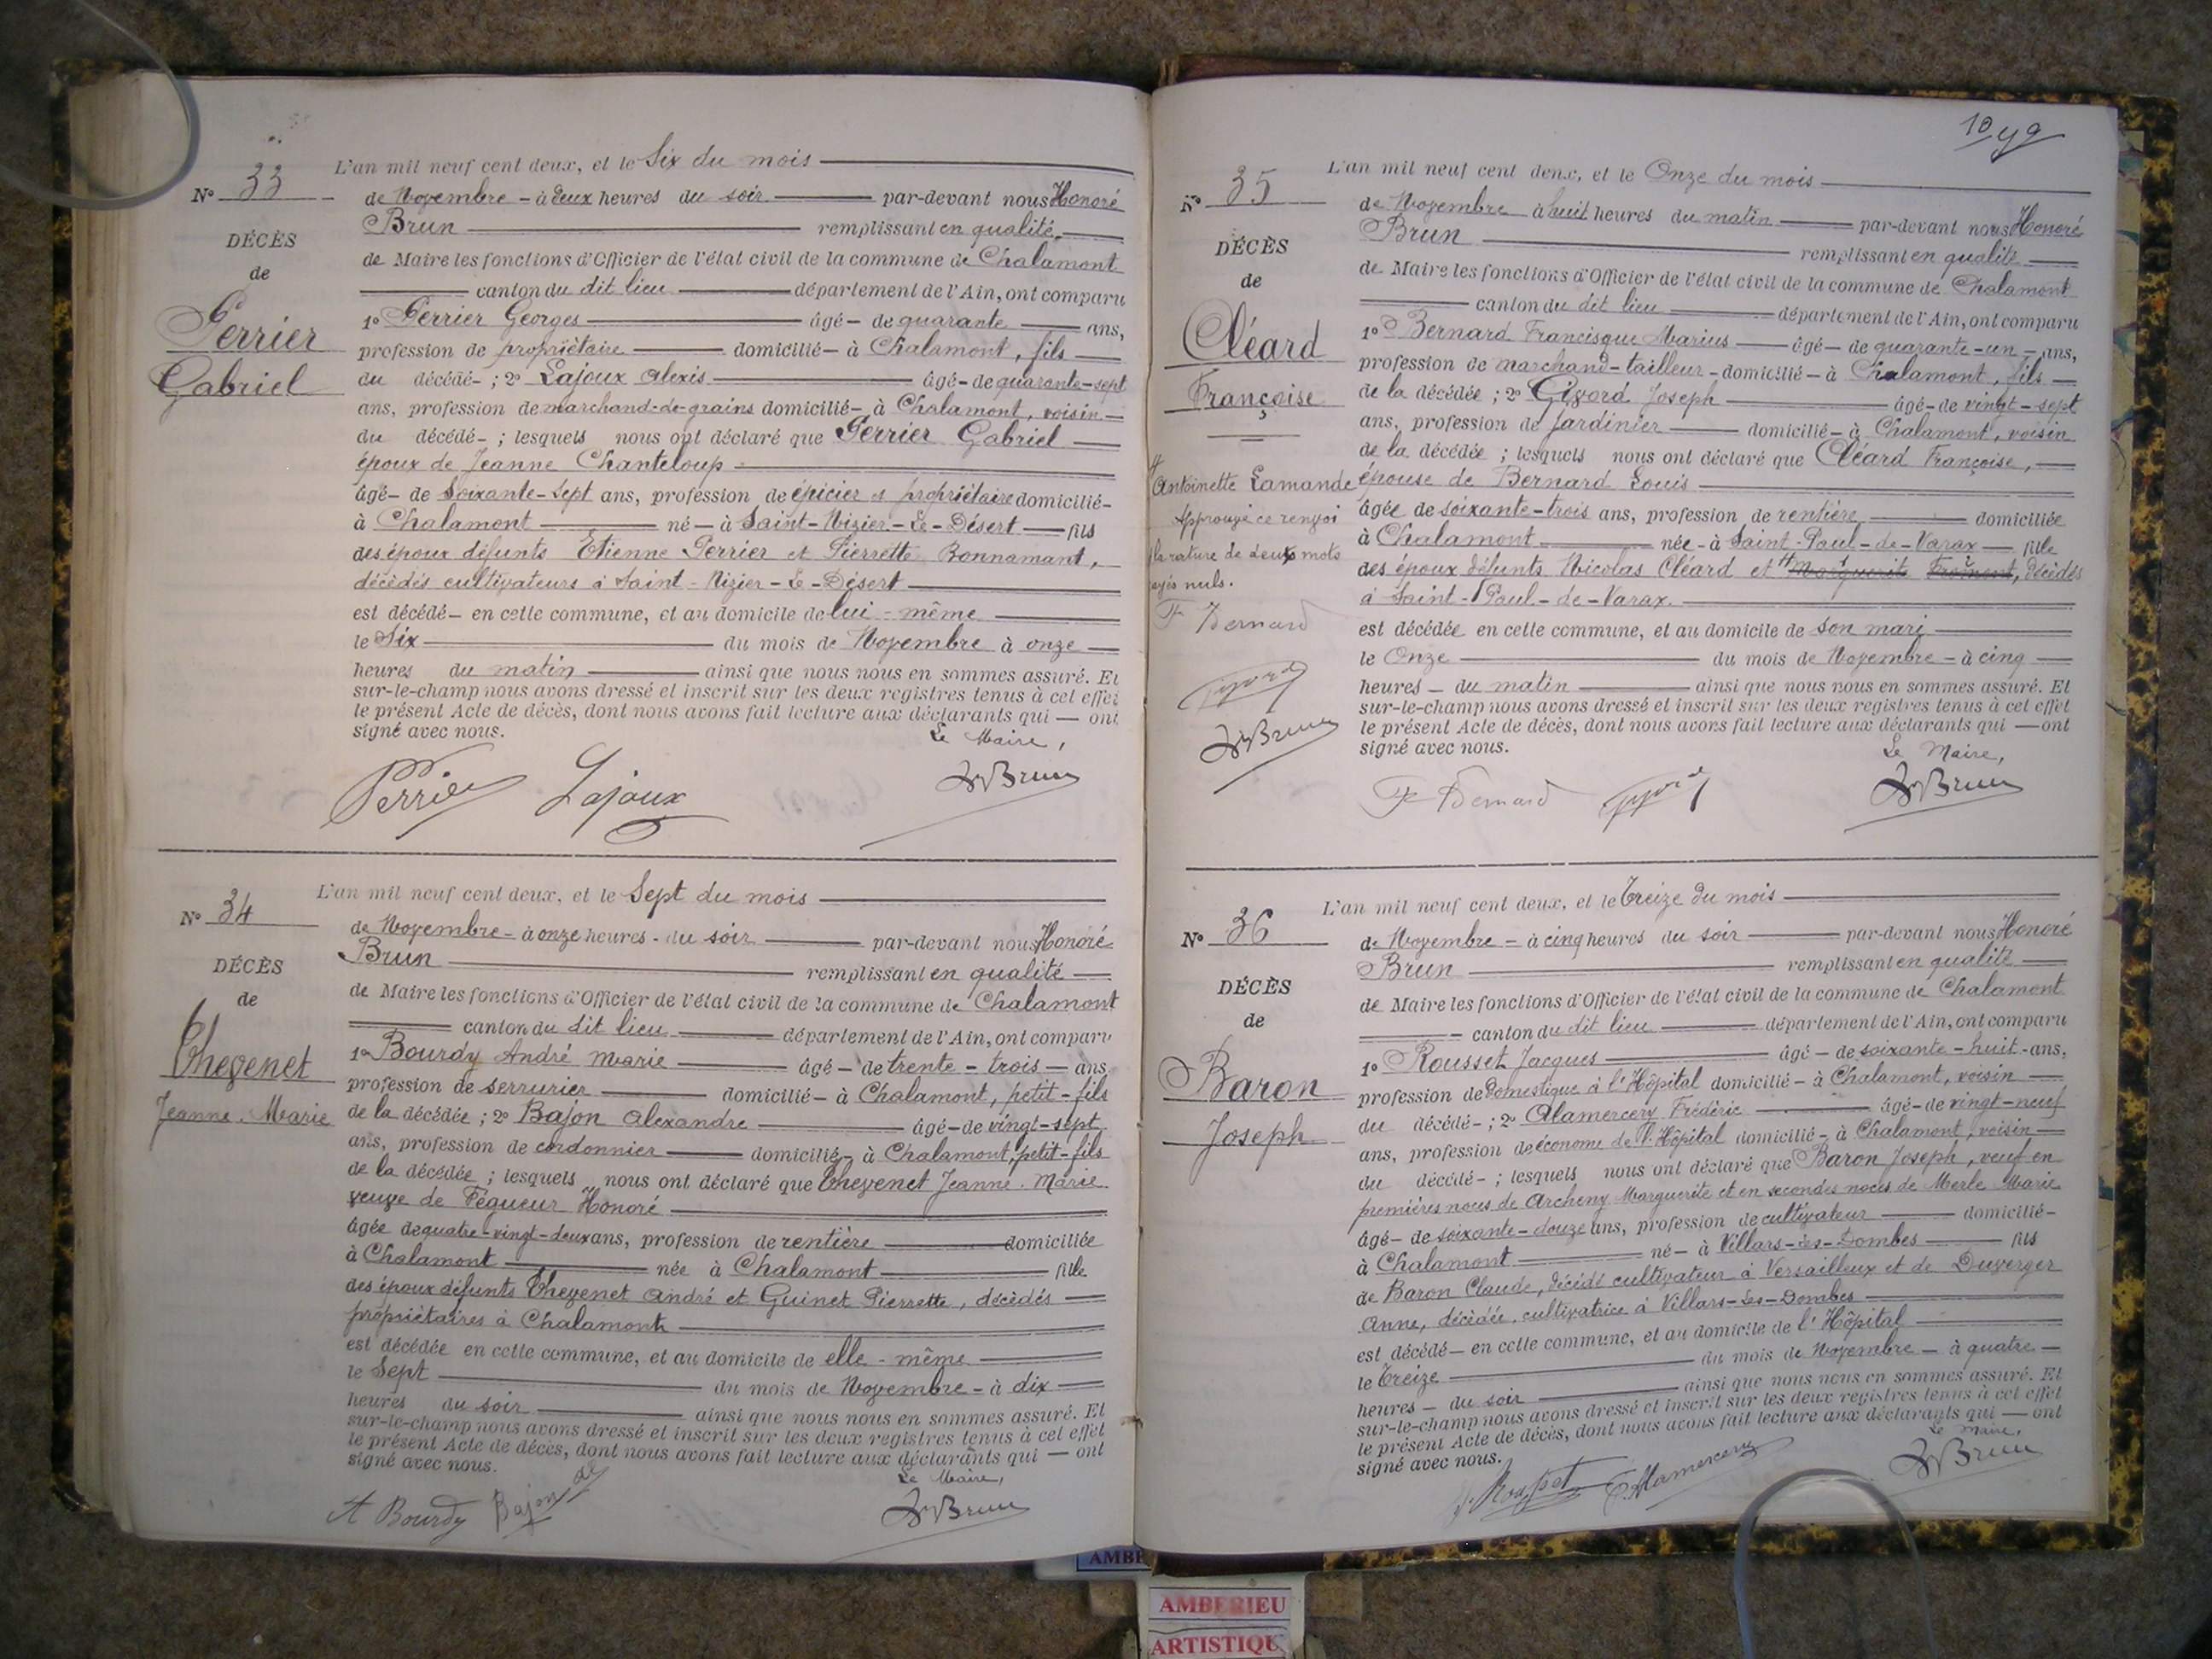 N° 33
DÉCÈS
de
Perrier
Gabriel
L'an mil neuf cent deux, et le Six du mois
de Novembre - à deux heures du soir par-devant nous Honoré
Brun remplissant en qualité
de Maire les fonctions d'Officier de l'état civil de la commune de Chalamont
canton du dit lieu département de l'Ain, ont comparu
1° Perrier Georges âgé - de quarante ans,
profession de propriétaire domicilié - à Chalamont, fils
du décédé - ; 2° Lajoux Alexis âgé - de quarante-sept
ans, profession de marchand-de-grains domicilié - à Chalamont, voisin
du décédé - ; lesquels nous ont déclaré que Perrier Gabriel
époux de Jeanne Chanteloup
âgé - de Soixante-Sept ans, profession de épicier et propriétaire domicilié -
à Chalamont né - à Saint-Nizier-Le-Désert fils
des époux défunts Etienne Perrier et Pierrette Bonnamant,
décédés cultivateurs à Saint-Nizier-Le-Désert
est décédé - en cette commune, et au domicile de lui-même
le Six du mois de Novembre à onze
heures du matin ainsi que nous nous en sommes assuré. Et
sur-le-champ nous avons dressé et inscrit sur les deux registres tenus à cet effet
le présent Acte de décès, dont nous avons fait lecture aux déclarants qui — ont
signé avec nous.
Le Maire,
Perrier Lajoux Brun
N° 34
DÉCÈS
de
Thevenet
Jeanne-Marie
L'an mil neuf cent deux, et le Sept du mois
de Novembre - à onze heures - du soir par-devant nous Honoré
Brun remplissant en qualité
de Maire les fonctions d'Officier de l'état civil de la commune de Chalamont
canton du dit lieu département de l'Ain, ont comparu
1° Bourdy André Marie âgé - de trente-trois - ans,
profession de serrurier domicilié - à Chalamont, petit-fils
de la décédée ; 2° Bajon Alexandre âgé - de vingt-sept
ans, profession de cordonnier domicilié - à Chalamont, petit-fils
de la décédée ; lesquels nous ont déclaré que Thevenet Jeanne-Marie
veuve de Péqueur Honoré
âgée de quatre-vingt-deux ans, profession de rentière domiciliée
à Chalamont née à Chalamont fille
des époux défunts Thevenet André et Guinet Pierrette, décédés
propriétaires à Chalamont
est décédée en cette commune, et au domicile de elle-même
le Sept du mois de Novembre - à dix
heures du soir ainsi que nous nous en sommes assuré. Et
sur-le-champ nous avons dressé et inscrit sur les deux registres tenus à cet effet
le présent Acte de décès, dont nous avons fait lecture aux déclarants qui — ont
signé avec nous.
Le Maire,
A Bourdy Bajon Brun
N° 35
DÉCÈS
de
Cléard
Françoise
Antoinette Lamande
Approuvé ce renvoi
la rature de deux mots
rayés nuls.
F Bernard
Brun
L'an mil neuf cent deux, et le Onze du mois
de Novembre à huit heures du matin par-devant nous Honoré
Brun remplissant en qualité
de Maire les fonctions d'Officier de l'état civil de la commune de Chalamont
canton du dit lieu département de l'Ain, ont comparu
1° Bernard Francisque Marius âgé - de quarante-un - ans,
profession de marchand-tailleur - domicilié - à Chalamont, fils
de la décédée ; 2° Joseph âgé - de vingt-sept
ans, profession de Jardinier domicilié - à Chalamont, voisin
de la décédée ; lesquels nous ont déclaré que Cléard Françoise,
épouse de Bernard Louis
âgée de soixante-trois ans, profession de rentière domiciliée
à Chalamont née - à Saint-Paul-de-Varax fille
des époux défunts Nicolas Cléard et Marguerite Fromont, décédés
à Saint-Paul-de-Varax.
est décédée en cette commune, et au domicile de son mari
le Onze du mois de Novembre - à cinq
heures - du matin ainsi que nous nous en sommes assuré. Et
sur-le-champ nous avons dressé et inscrit sur les deux registres tenus à cet effet
le présent Acte de décès, dont nous avons fait lecture aux déclarants qui — ont
signé avec nous.
Le Maire,
F Bernard Brun
N° 36
DÉCÈS
de
Baron
Joseph
L'an mil neuf cent deux, et le Treize du mois
de Novembre - à cinq heures du soir par-devant nous Honoré
Brun remplissant en qualité
de Maire les fonctions d'Officier de l'état civil de la commune de Chalamont
canton du dit lieu département de l'Ain, ont comparu
1° Rousset Jacques âgé - de soixante-huit - ans,
profession de Domestique à l'Hôpital domicilié - à Chalamont, voisin
du décédé - ; 2° Alamercery Frédéric âgé - de vingt-neuf
ans, profession de économe de l'Hôpital domicilié - à Chalamont, voisin
du décédé - ; lesquels nous ont déclaré que Baron Joseph, veuf en
premières noces de Archeny Marguerite et en secondes noces de Merle Marie
âgé - de soixante-douze ans, profession de cultivateur domicilié -
à Chalamont né - à Villars-Les-Dombes fils
de Baron Claude, décédé cultivateur à Versailleux et de Duverger
Anne, décédée, cultivatrice à Villars-Les-Dombes
est décédé - en cette commune, et au domicile de l'Hôpital
le Treize du mois de Novembre - à quatre
heures - du soir ainsi que nous nous en sommes assuré. Et
sur-le-champ nous avons dressé et inscrit sur les deux registres tenus à cet effet
le présent Acte de décès, dont nous avons fait lecture aux déclarants qui — ont
signé avec nous.
Le Maire,
Rousset Alamercery Brun
AMBE
AMBERIEU
ARTISTIQU